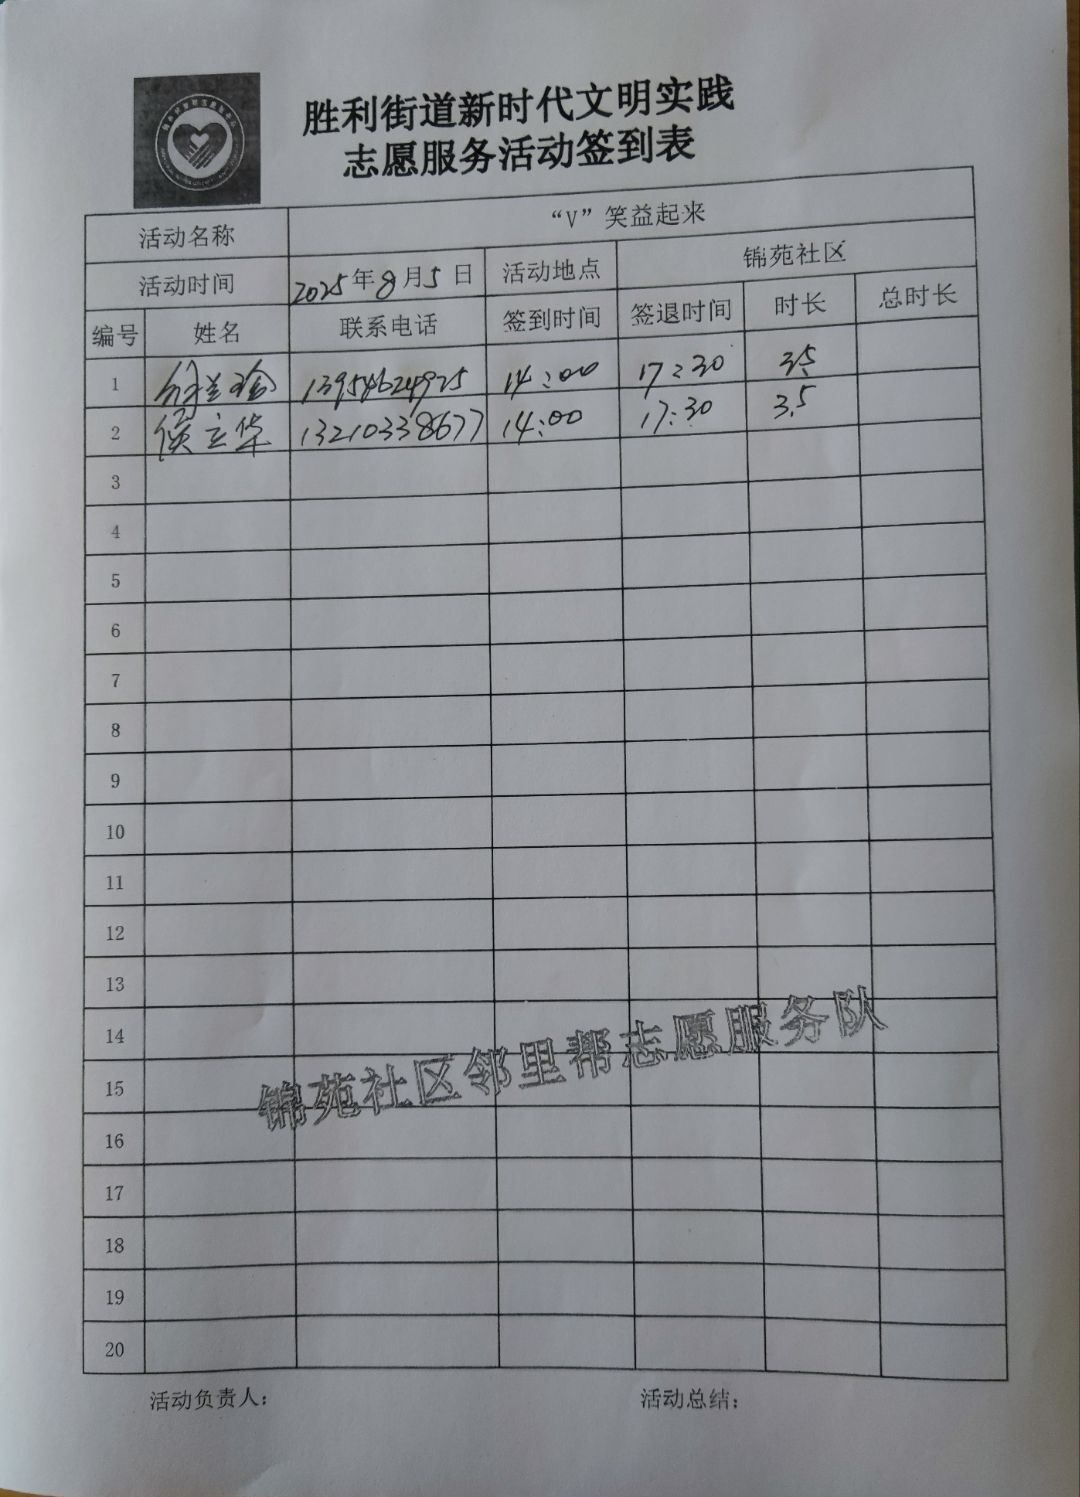 胜利街道新时代文明实践
志愿服务活动签到表
活动名称 “V”笑益起来
活动时间 2025年8月5日 活动地点 锦苑社区
编号 姓名 联系电话 签到时间 签退时间 时长 总时长
1 徐兰瑜 13954624925 14:00 17:30 3.5
2 侯立华 13210338677 14:00 17:30 3.5
3
4
5
6
7
8
9
10
11
12
13
14
15
16
17
18
19
20
锦苑社区邻里帮志愿服务队
活动负责人: 活动总结: